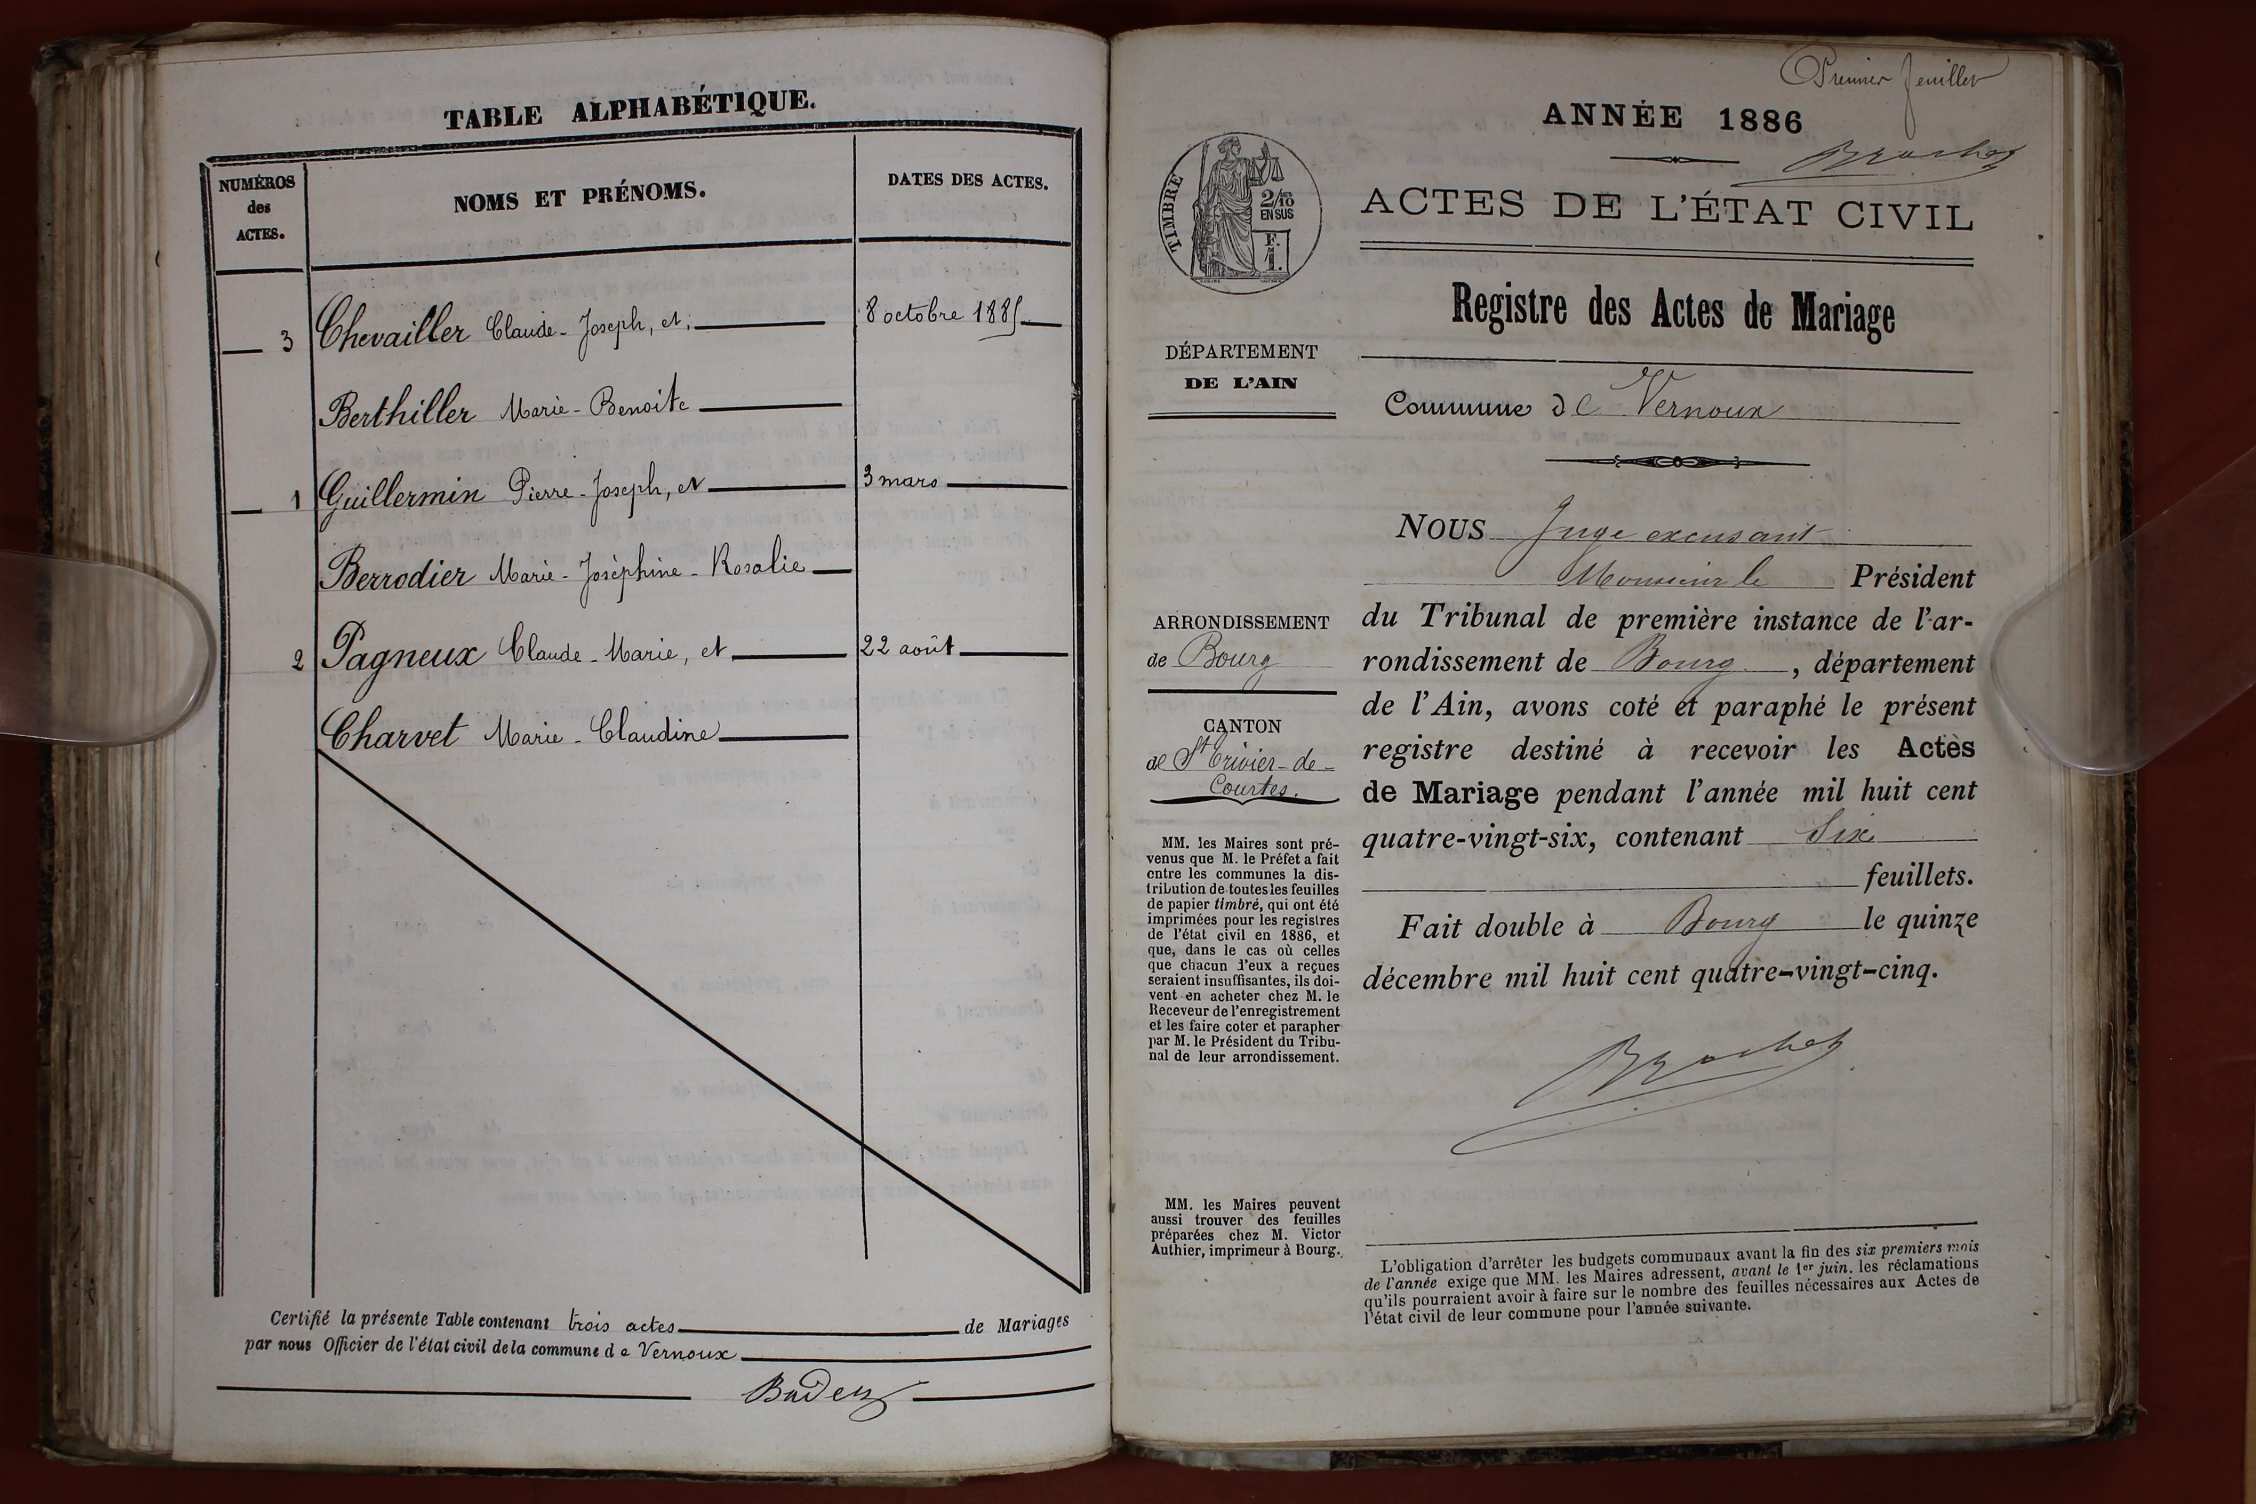 TABLE ALPHABÉTIQUE.
NUMÉROS
des
ACTES.
NOMS ET PRÉNOMS.
DATES DES ACTES.
3 Chevailler Claude-Joseph, et, 8 octobre 1885
Berthiller Marie-Benoite
1 Guillermin Pierre-Joseph, et 3 mars
Berrodier Marie-Joséphine-Rosalie
2 Pagneux Claude-Marie, et 22 août
Charvet Marie-Claudine
Certifié la présente Table contenant trois actes de Mariages
par nous Officier de l'état civil de la commune de Vernoux
Premier feuillet
ANNÉE 1886
ACTES DE L'ÉTAT CIVIL
TIMBRE
2/10
EN SUS
F.
1.
Registre des Actes de Mariage
DÉPARTEMENT
DE L'AIN
Commune de Vernoux
NOUS Juge excusant
Monsieur le Président
du Tribunal de première instance de l'ar-
rondissement de Bourg, département
de l'Ain, avons coté et paraphé le présent
registre destiné à recevoir les Actes
de Mariage pendant l'année mil huit cent
quatre-vingt-six, contenant Six
feuillets.
Fait double à Bourg le quinze
décembre mil huit cent quatre-vingt-cinq.
ARRONDISSEMENT
de Bourg
CANTON
de St Trivier-de-
Courtes.
MM. les Maires sont pré-
venus que M. le Préfet a fait
entre les communes la dis-
tribution de toutes les feuilles
de papier timbré, qui ont été
imprimées pour les registres
de l'état civil en 1886, et
que, dans le cas où celles
que chacun d'eux a reçues
seraient insuffisantes, ils doi-
vent en acheter chez M. le
Receveur de l'enregistrement
et les faire coter et parapher
par M. le Président du Tribu-
nal de leur arrondissement.
MM. les Maires peuvent
aussi trouver des feuilles
préparées chez M. Victor
Authier, imprimeur à Bourg.
L'obligation d'arrêter les budgets communaux avant la fin des six premiers mois
de l'année exige que MM. les Maires adressent, avant le 1er juin, les réclamations
qu'ils pourraient avoir à faire sur le nombre des feuilles nécessaires aux Actes de
l'état civil de leur commune pour l'année suivante.